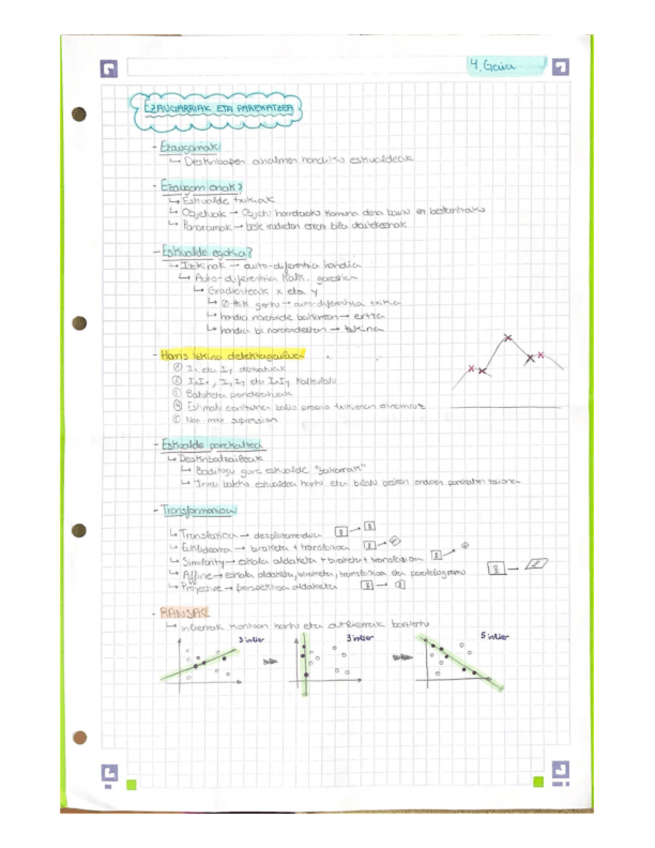 4. Gaia
EZAUGARRIAK ETA PAREKATZEA
- Ezaugarriak
↳ Deskribapen ahalmen handiko eskualdeak
- Ezaugarri onak?
↳ Eskualde txikiak
↳ Objetuak → Objetu
↳ Panoramak → bste irudietan erraz bilatu daitezkeenak
- Eskualde egokia?
↳ Izkinak → auto-diferentzia handia
↳ Auto-diferentzia kalk. garestia
↳ Gradienteak x eta y
↳ 0-tik gertu → auto-diferentzia txikia
↳ handia norabide bakarrean → ertza
↳ handia bi norabideetan → izkina
- Harris izkina detektagailua
① Ix eta Iy deribatuak
② IxIx, IyIy eta IxIy kalkulatu
Batuketa ponderatuak
balio propio txikienaren
Non-max supression
- Eskualde parekatzea
↳ Deskribatzaileak
↳ Baditugu gure eskualde "bakarrak"
↳ eskualdea hartu eta bilatu
- Transformazioak
↳ Translation → desplazamendua
↳ Euklidearra → biraketa + translazioa
↳ Similarity → eskala aldaketa + biraketa + translazioa
↳ Affine → eskala aldaketa, biraketa, translazioa eta paralelogramo
↳ Proyective → perspektiba aldaketa
- RANSAC
↳ inlierrak kontuan hartu eta outlierrak baztertu
3 inlier 3 inlier 5 inlier